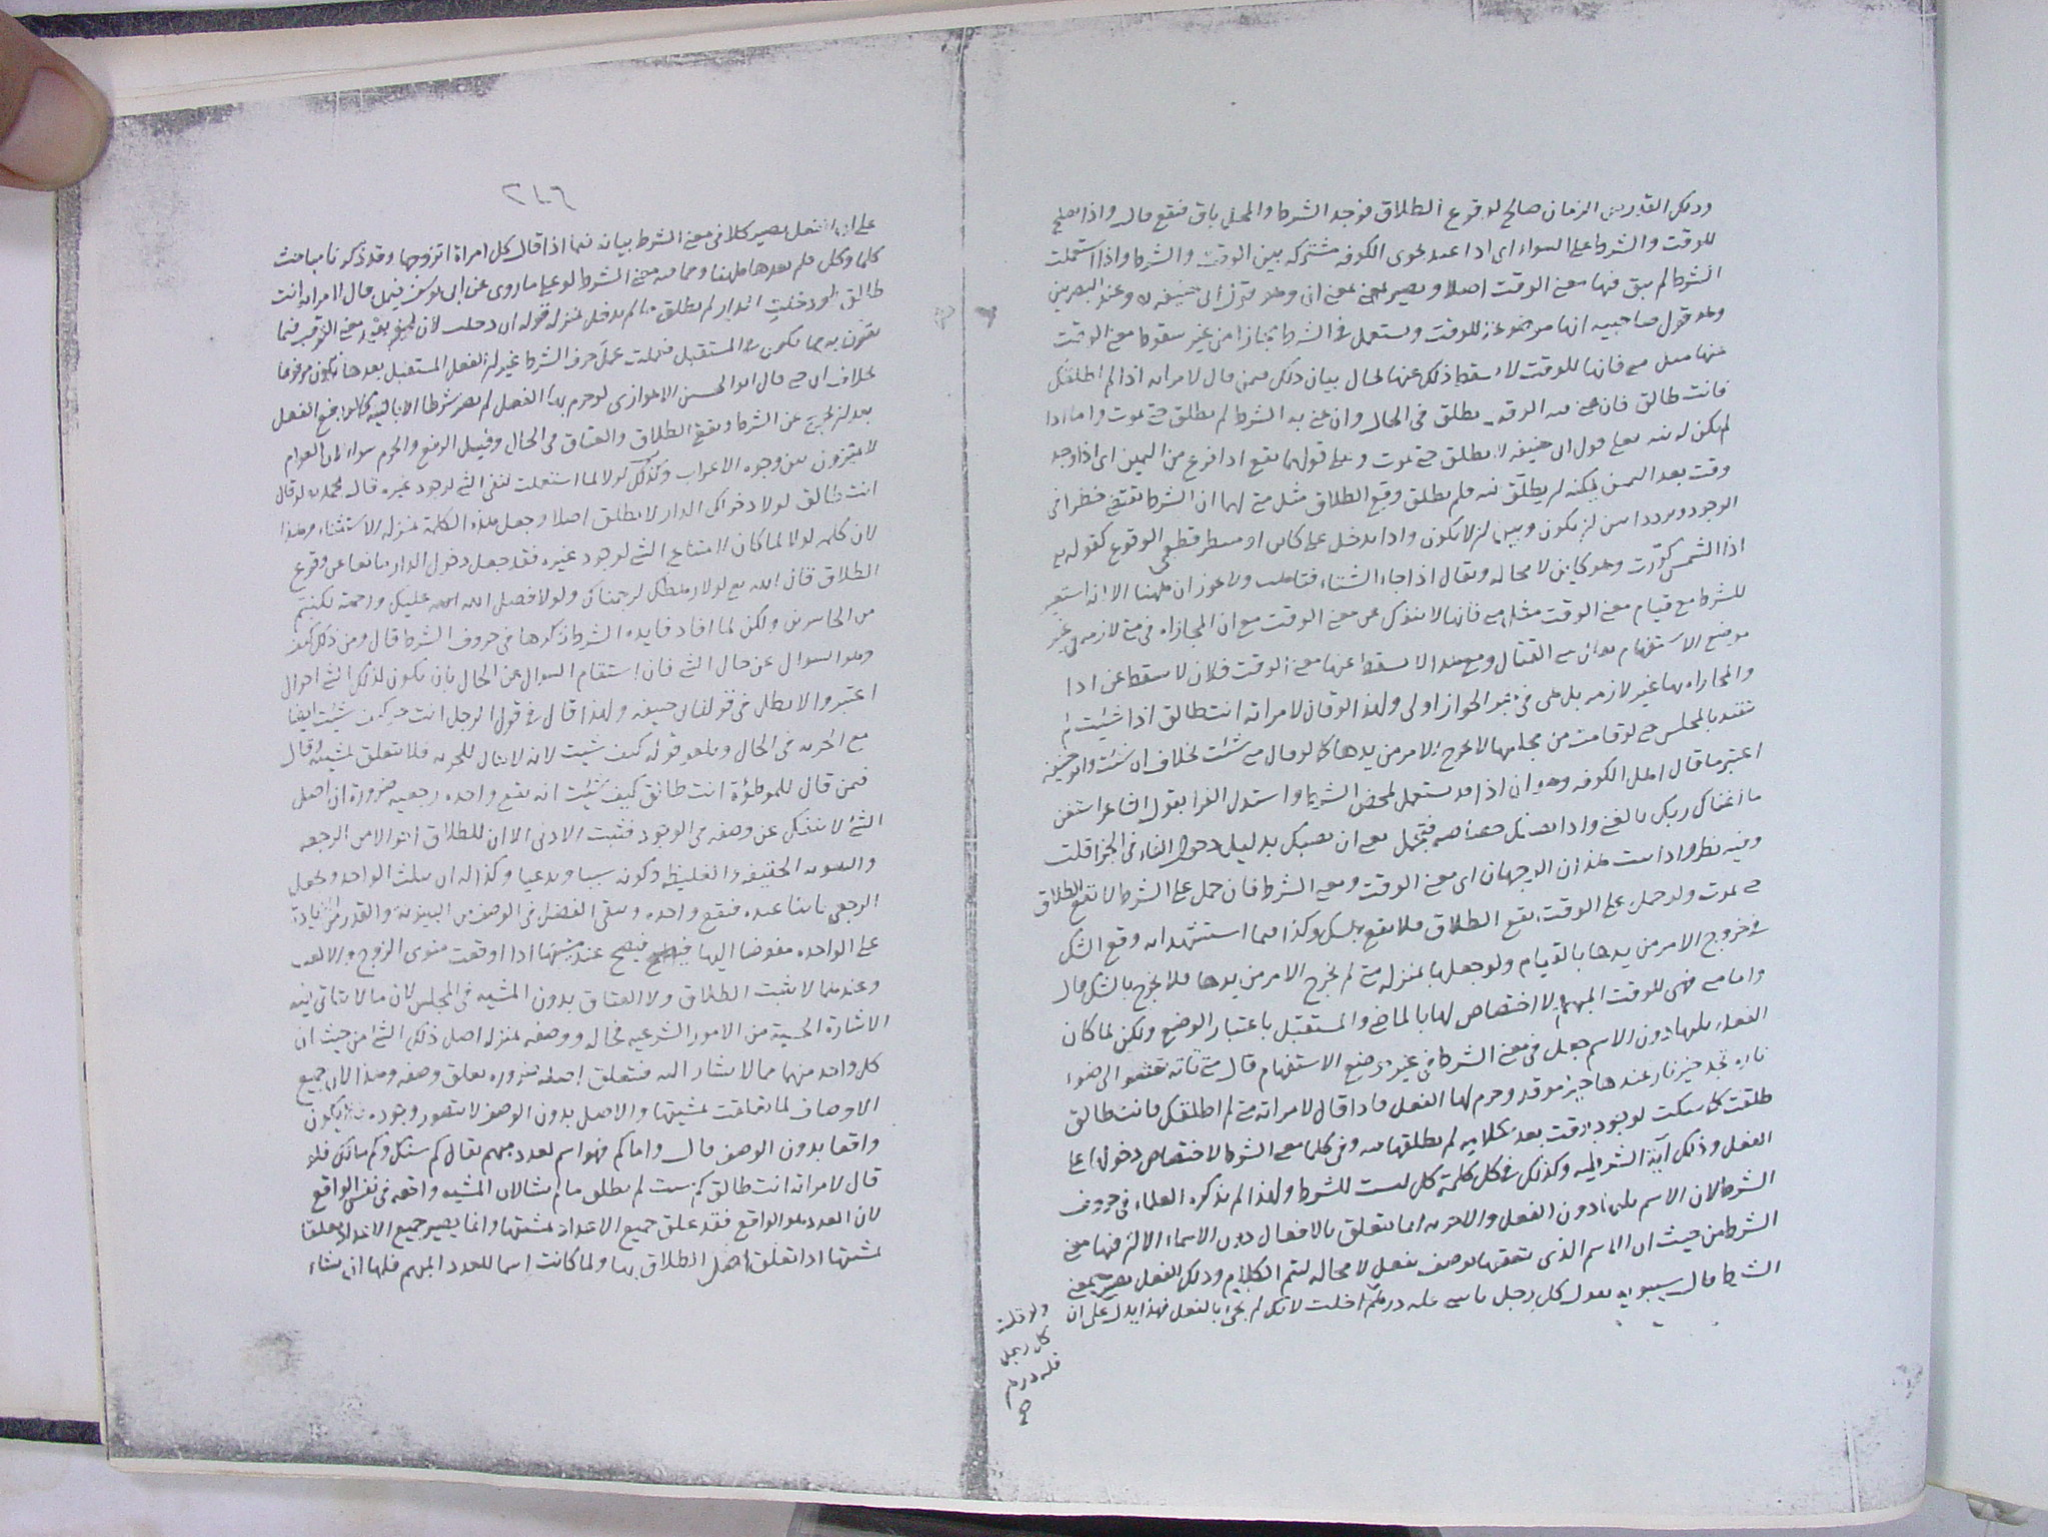 وذلك القدر من الزمان صالح لوقوع الطلاق فوجد الشرط والمحل باق فتقع قال واذا يصلح
للوقت والشرط على السواء اي اذا عند نحوي الكوفه مشتركه بين الوقت والشرط واذا استعملت
الشرط لم يبق فيها معنى الوقت اصلا ويصير بمعنى ان وهو قول ابي حنيفه ره وعند البصريين
وهو قول صاحبيه انها موضوعة للوقت ويستعمل في الشرط مجازا من غير سقوط معنى الوقت
عنها مثل متى فانها للوقت لا يسقط ذلك عنها بحال بيان ذلك فيمن قال لامراته اذا لم اطلقك
فانت طالق فان عنى به الوقت يطلق في الحال وان عنى به الشرط لم يطلق حتى يموت واما اذا
لم يكن له نيه فعلى قول ابي حنيفه لا يطلق حتى يموت وعلى قولهما يقع اذا فرغ من اليمين اي اذا وجد
وقت بعد اليمين يمكنه ان يطلق فيه فلم يطلق وقع الطلاق مثل متى لهما ان الشرط يقتضي خطرا في
الوجود وترددا بين ان يكون وبين ان لا يكون واذا يدخل على كاين او منتظر قطعي الوقوع كقوله تع
اذا الشمس كورت وهو كاين لا محاله ويقال اذا جاء الشتاء فتاهب ولا يجوز ان ههنا الا انه استعير
للشرط مع قيام معنى الوقت مثل متى فانها لا ينفك عن معنى الوقت مع ان المجازاه في متى لازمه في غير
موضع الاستفهام متى القتال ومع هذا لا يسقط عنها معنى الوقت فلان لا يسقط عن اذا
والمجازاه بها غير لازمه بل هى في حيز الجواز اولى ولهذا لو قال لامراته انت طالق اذا شئت لم
يتقيد بالمجلس حتى لو قامت من مجلسها لا يخرج الامر من يدها كما لو قال متى شئت بخلاف ان شئت وابو حنيفه
اعتبر ما قال اهل الكوفه وهو ان اذا قد يستعمل لمحض الشرط واستدل الفرا بقول الشاعر استغن
ما اغناك ربك بالغنى واذا تصبك خصاصه فتجمل معنى ان تصبك بدليل دخول الفاء في الجزا قلت
وفيه نظر واذا ثبت هذان الوجهان اي معنى الوقت ومعنى الشرط فان حمل على الشرط لا يقع الطلاق
حتى يموت ولو حمل على الوقت يقع الطلاق فلا يقع بالشك وكذا فيما استشهدا به وقع الشك
في خروج الامر من يدها بالقيام ولو جعلها بمنزله متى لم يخرج الامر من يدها فلا يخرج بالشك قال
واما متى فهى للوقت المبهم لا اختصاص لها بالماضى والمستقبل باعتبار الوضع ولكن لما كان
الفعل يليها دون الاسم جعل في معنى الشرط في غير موضع الاستفهام قال متى تاته تعشو الى ضوء
ناره تجد خير نار عندها خير موقد وجزم لها الفعل فاذا قال لامراته متى لم اطلقك فانت طالق
طلقت كما سكت لوجود وقت بعد كلامه لم يطلقها فيه وفي كلما معنى الشرط لاختصاص دخولها على
الفعل وذلك آية الشرطيه وكذلك في كل كلمة كل ليست للشرط ولهذا لم يذكره العلماء في حروف
الشرط لان الاسم يليها دون الفعل والاجزيه انما يتعلق بالافعال دون الاسماء الا ان فيها معنى
الشرط من حيث ان الاسم الذي يتعقبها يوصف بفعل لا محاله ليتم الكلام وذلك الفعل يصير بمعنى
الشرط قال سيبويه يقول كل رجل ياتيني فله درهم اخلت لانك لم تجئ بالفعل فهذا يدل على ان
ولو قلت
كل رجل
فله درهم
صح
٢٤٦
على ان الفعل يصير كلا في معنى الشرط بيانه فيما اذا قال كل امراة اتزوجها وقد ذكرنا مباحث
كلما وكل فلم نعدها ههنا ومما فيه معنى الشرط لو على ما روى عن ابي يوسف فيمن قال لامراته انت
طالق لو دخلت الدار لم يطلق ما لم يدخل بمنزله قوله ان دخلت لان لو يفيد معنى الترقب فيما
يقترن به مما يكون في المستقبل فعملت عمل حرف الشرط غير ان الفعل المستقبل بعدها يكون مرفوعا
بخلاف ان حتى قال ابو الحسن الاهوازي لو جزم بها الفعل لم يصر شرطا الا بالنيه كما لو رفع الفعل
بعد ان يخرج عن الشرط ويقع الطلاق والعتاق في الحال وقيل الرفع والجزم سواء لان العوام
لا يميزون بين وجوه الاعراب وكذلك لولا لما استعملت لنفي الشئ لوجود غيره قال محمد ره لو قال
انت طالق لولا دخولك الدار لا يطلق اصلا وجعل هذه الكلمة بمنزله الاستثناء وهذا
لان كلمه لولا لما كان لامتناع الشئ لوجود غيره فقد جعل دخول الدار مانعا عن وقوع
الطلاق قال الله تع لولا رهطك لرجمناك ولولا فضل الله عليكم ورحمته لكنتم
من الخاسرين ولكن لما افاد فايده الشرط ذكرها في حروف الشرط قال ومن ذلك كيف
وهو السوال عن حال الشئ فان استقام السوال عن الحال بان يكون لذلك الشئ احوال
اعتبر والا بطل في قول ابي حنيفه ولهذا قال في قول الرجل انت حر كيف شئت ايقا
مع الحريه في الحال ويلغو قوله كيف شئت لانه لا حال للحريه فلا يتعلق بمشيته وقال
فيمن قال للموطؤة انت طالق كيف شئت انه يقع واحده رجعيه ضرورة ان اصل
الشئ لا ينفك عن وصفه في الوجود فثبت الادنى الا ان للطلاق احوالا من الرجعه
والبينونه الخفيفه والغليظه وكونه سنيا وبدعيا وكذا له ان يثلث الواحد ويجعل
الرجعي باينا عنده فيقع واحده ويبقى الفضل في الوصف من البينونه والقدر من الزيادة
على الواحده مفوضا اليها فيصح عند مشيتها اذا وافقت منوى الزوج والا فلا
وعندهما لا يثبت الطلاق ولا العتاق بدون المشيه في المجلس لان ما لا يتاتى فيه
الاشارة الحسية من الامور الشرعيه فحاله ووصفه بمنزله اصل ذلك الشئ من حيث ان
كل واحد منهما مما لا يشار اليه فتتعلق اصله ضروره تعلق وصفه وهذا لان جميع
الاوصاف لما تعلقت بمشيتها والاصل بدون الوصف لا يتصور وجوده فلا يكون
واقعا بدون الوصف قال واما كم فهو اسم لعدد مبهم يقال كم سنك وكم مالك فلو
قال لامراته انت طالق كم شئت لم يطلق ما لم تشا لان المشيه واقعه في نفس الواقع
لان العدد هو الواقع فقد علق جميع الاعداد بمشيتها وانما يصير جميع الاعداد معلقا
بمشيتها اذا تعلق اصل الطلاق بها ولما كانت اسما للعدد المبهم فلها ان تشاء